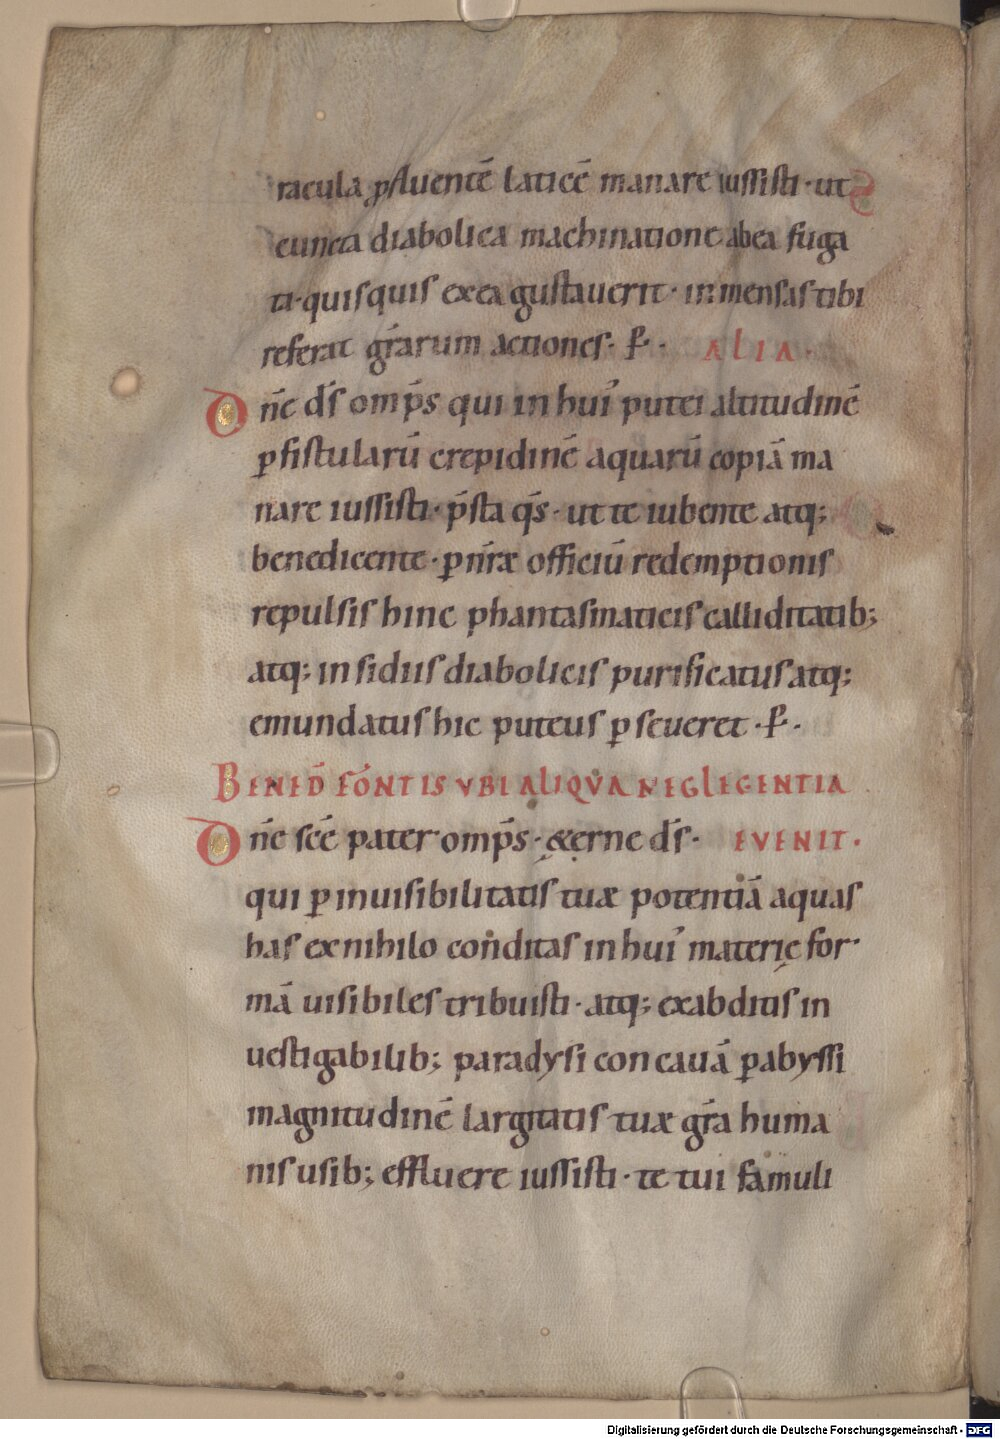 racula ꝓfluentē laticē manare iussisti · ut
cuncta diabolica machinatione abea fuga
ti · quisquis exea gustauerit · inmensas tibi
referat gr̄arum actiones · P̄ · ALIA ·
Dn̄e d̄s omp̄s qui in hui᾽ putei altitudinē
ꝑ fistularū crepidinē aquarū copiā ma
nare iussisti · p̄sta q̄s · ut te iubente atq;
benedicente · ꝑ nr̄æ officiū redemptionis
repulsis hinc phantasmaticis calliditatib;
atq; insidiis diabolicis purificatus atq;
emundatus hic puteus ꝑseueret · P̄ ·
BENED̄ FONTIS VBI ALIQVA NEGLEGENTIA
Dn̄e sc̄e pater omp̄s · &erne d̄s · EVENIT ·
qui ꝑ inuisibilitatis tuæ potentiā aquas
has exnihilo conditas in hui᾽ materię for
mā uisibiles tribuisti · atq; exabditis in
uestigabilib; paradysi concauā ꝑ abyssi
magnitudinē largitatis tuæ gr̄a huma
nis usib; effluere iussisti · te tui famuli
Digitalisierung gefördert durch die Deutsche Forschungsgemeinschaft - DFG